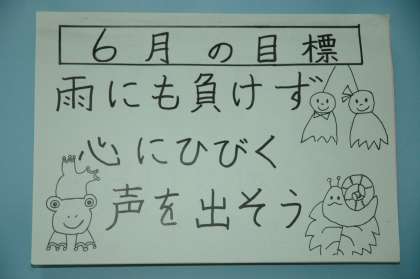 6月の目標
雨にも負けず
心にひびく
声を出そう